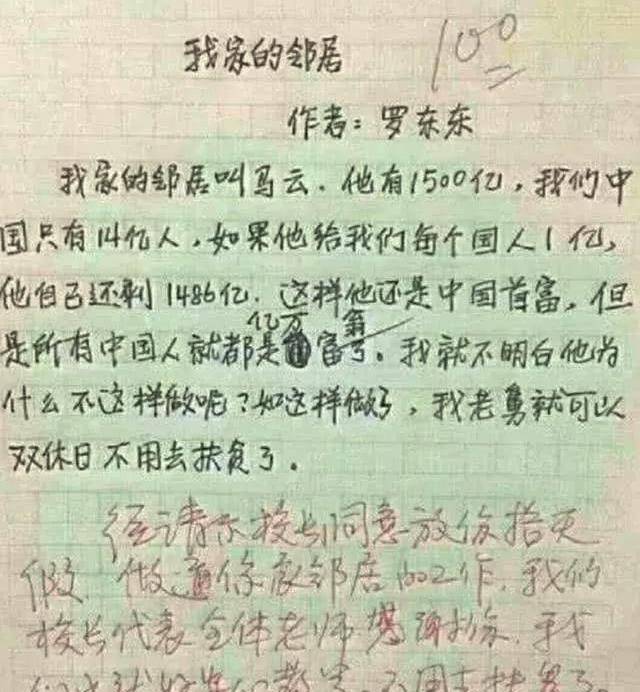 我家的邻居
100
作者：罗东东
我家的邻居叫马云．他有1500亿，我们中
国只有14亿人，如果他给我们每个国人1亿，
他自己还剩1486亿．这样他还是中国首富，但
亿万 翁
是所有中国人就都是富了。我就不明白他为
什么不这样做呢？如这样做了，我老舅就可以
双休日不用去扶贫了。
经请示校长同意放你拾天
假．做通你家邻居的工作．我们
校长代表全体老师感谢你．我
们 不用去扶贫了